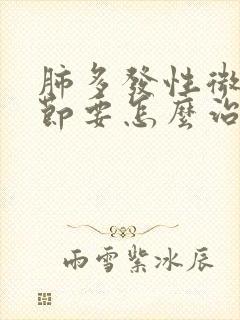 肺多發性微
節要怎麼治
雨雪紫冰辰